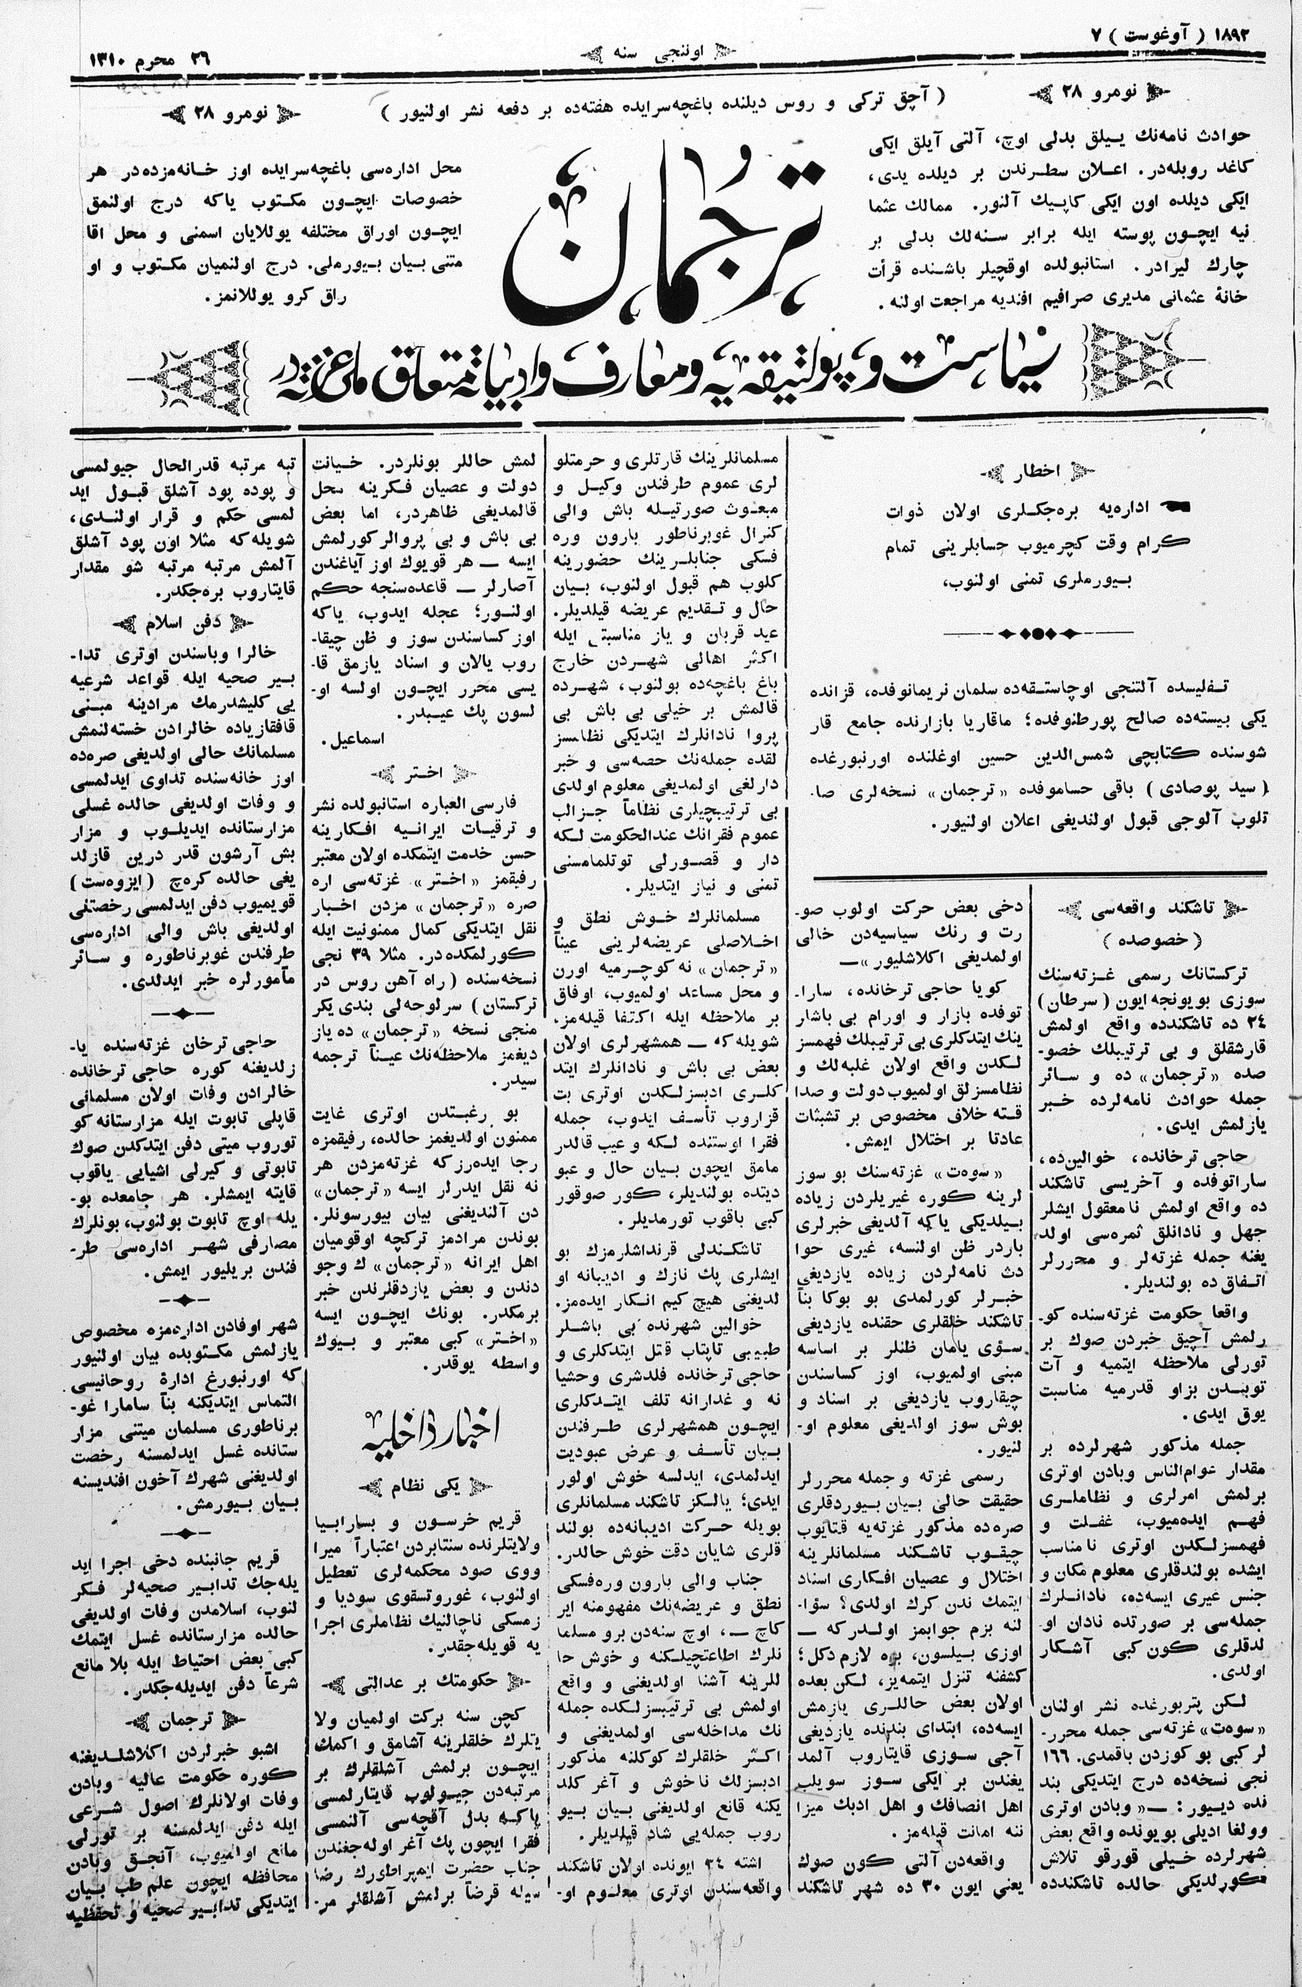 ١٨٩٢ ( آوغوست ) ٧
اوننجی سنه
٢٦ محرم ١٣١٠
نومرو ٢٨
( آچق ترکی و روس دیلنده باغچه‌سرایده هفته‌ده بر دفعه نشر اولنیور )
نومرو ٢٨
حوادث نامه‌نك ییللق بدلی اوچ، آلتی آیلق ایکی
کاغد روبله‌در. اعلان سطرندن بر دیلده یدی،
ایکی دیلده اون ایکی کاپیك آلنور. ممالك عثما
نیه ایچون پوسته ایله برابر سنه‌لك بدلی بر
چارك لیرادر. استانبولده اوقچیلر باشنده قرأت
خانهٔ عثمانی مدیری صرافیم افندیه مراجعت اولنه.
ترجمان
محل اداره‌سی باغچه‌سرایده اوز خانه‌مزده‌در هر
خصوصات ایچون مکتوب یاکه درج اولنمق
ایچون اوراق مختلفه یوللایان اسمنی و محل اقا
متنی بیان بیورملی. درج اولنمیان مکتوب و او
راق کرو یوللانمز.
سیاست و پولتیقه‌یه و معارف و ادبیاته متعلق ملی غزته‌در
اخطار
اداره‌یه بره‌جکلری اولان ذوات
کرام وقت کچرمیوب حسابلرینی تمام
بیورملری تمنی اولنوب،
تفلیسده آلتنجی اوچاستقه‌ده سلمان نریمانوفده، قزانده
یکی بیسته‌ده صالح پورطنوفده؛ ماقاریا بازارنده جامع قار
شوسنده کتابچی شمس‌الدین حسین اوغلنده اورنبورغده
(سید پوصادی) باقی حساموفده «ترجمان» نسخه‌لری صا-
تلوب آلوجی قبول اولندیغی اعلان اولنیور.
تاشکند واقعه‌سی
( خصوصده )
ترکستانك رسمی غزته‌سنك
سوزی بویونجه ایون (سرطان)
٢٤ ده تاشکندده واقع اولمش
قارشقلق و بی ترتیبلك خصو-
صده «ترجمان» ده و سائر
جمله حوادث نامه‌لرده خبر
یازلمش ایدی.
حاجی ترخانده، خوالین‌ده،
ساراتوفده و آخریسی تاشکند
ده واقع اولمش نامعقول ایشلر
جهل و نادانلق ثمره‌سی اولد
یغنه جمله غزته‌لر و محررلر
اتفاق ده بولندیلر.
واقعا حکومت غزته‌سنده کو-
رلمش آچیق خبردن صوك بر
تورلی ملاحظه ایتمیه و آت
توپندن بزاو قدرمیه مناسبت
یوق ایدی.
جمله مذکور شهرلرده بر
مقدار عوام‌الناس وبادن اوتری
برلمش امرلری و نظاملری
فهم ایده‌میوب، غفلت و
فهمسزلکدن اوتری نامناسب
ایشده بولندقلری معلوم مکان و
جنس غیری ایسه‌ده، نادانلرك
جمله‌سی بر صورتده نادان او
لدقلری کون کبی آشکار
اولدی.
لکن پتربورغده نشر اولنان
«سوه‌ت» غزته‌سی جمله محرر-
لر کبی بو کوزدن باقمدی. ١٦٦
نجی نسخه‌ده درج ایتدیکی بند
نده دیور: — «وبادن اوتری
وولغا ادیلی بویونده واقع بعض
شهرلرده خیلی قورقو تلاش
کورلدیکی حالده تاشکندده
دخی بعض حرکت اولوب صو-
رت و رنك سیاسیه‌دن خالی
اولمدیغی اکلاشلیور» —
کویا حاجی ترخانده، سارا-
توفده بازار و اورام بی باشار
ینك ایتدکلری بی ترتیبلك فهمسز
لکدن واقع اولان غلبه‌لك و
نظامسزلق اولمیوب دولت و صدا
قته خلافی مخصوص بر تشبثات
عادتا بر اختلال ایمش.
«سوه‌ت» غزته‌سنك بو سوز
لرینه کوره غیریلردن زیاده
بیلدیکی یاکه آلدیغی خبرلری
باردر ظن اولنسه، غیری حوا
دث نامه‌لردن زیاده یازدیغی
خبرلر کورلمدی بو بوکا بنآ
تاشکند خلقلری حقنده یازدیغی
سؤی یامان ظنلر بر اساسه
مبنی اولمیوب، اوز کساسندن
چیقاروب یازدیغی بر اسناد و
بوش سوز اولدیغی معلوم او-
لنیور.
رسمی غزته و جمله محررلر
حقیقت حالی بیان بیوردقلری
صره‌ده مذکور غزته‌یه قتایوب
چیقوب تاشکند مسلمانلرینه
اختلال و عصیان افکاری اسناد
ایتمك ندن کرك اولدی؟ سؤا-
لنه بزم جوابمز اولدرکه —
اوزی بیلسون، بره لازم دکل؛
کشفنه تنزل ایتمه‌یز، لکن بعده
اولان بعض حاللری یازمش
ایسه‌ده، ابتدای بندنده یازدیغی
آجی سوزی قایتاروب آلمد
یغندن بر ایکی سوز سویلب
اهل انصافك و اهل ادبك میزا
ننه امانت قیله‌مز.
واقعه‌دن آلتی کون صوك
یعنی ایون ٣٠ ده شهر تاشکند
مسلمانلرینك قارتلری و حرمتلو
لری عموم طرفندن وکیل و
مبعوث صورتیله باش والی
کنرال غوبرناطور بارون وره
فسکی جنابلرینك حضورینه
کلوب هم قبول اولنوب، بیان
حال و تقدیم عریضه قیلدیلر.
عید قربان و یاز مناسبتی ایله
اکثر اهالی شهردن خارج
باغ باغچه‌ده بولنوب، شهرده
قالمش بر خیلی بی باش بی
پروا نادانلرك ایتدیکی نظامسز
لقده جمله‌نك حصه‌سی و خبر
دارلغی اولمدیغی معلوم اولدی
بی ترتیبچیلری نظاماً جزالب
عموم فقرانك عندالحکومت لکه
دار و قصورلی توتلمامسنی
تمنی و نیاز ایتدیلر.
مسلمانلرك خوش نطق و
اخلاصلی عریضه‌لرینی عیناً
«ترجمان» نه کوچرمیه اورن
و محل مساعد اولمیوب، اوفاق
بر ملاحظه ایله اکتفا قیله‌مز.
شویله‌که — همشهرلری اولان
بعض بی باش و نادانلرك ایتد
کلری ادبسزلکدن اوتری بت
قزاروب تأسف ایدوب، جمله
فقرا اوستنده لکه و عیب قالدر
مامق ایچون بیان حال و عبو
دیتده بولندیلر، کور صوقور
کبی باقوب تورمدیلر.
تاشکندلی قرنداشلرمزك بو
ایشلری پك نازك و ادیبانه او
لدیغنی هیچ کیم انکار ایده‌مز.
خوالین شهرنده بی باشلر
طبیبی تاپتاب قتل ایتدکلری و
حاجی ترخانده فلدشری وحشیا
نه و غدارانه تلف ایتدکلری
ایچون همشهرلری طرفندن
بیان تأسف و عرض عبودیت
ایدلمدی، ایدلسه خوش اولور
ایدی؛ یالکز تاشکند مسلمانلری
بویله حرکت ادیبانه‌ده بولند
قلری شایان دقت خوش حالدر.
جناب والی بارون وره‌فسکی
نطق و عریضه‌نك مفهومنه ایر
کاچ —، اوچ سنه‌دن برو مسلما
نلرك اطاعتچیلکنه و خوش حا
للرینه آشنا اولدیغنی و واقع
اولمش بی ترتیبسزلکده جمله
نك مداخله‌سی اولمدیغنی و
اکثر خلقلرك کوکلنه مذکور
ادبسزلك ناخوش و آغر کلد
یکنه قانع اولدیغنی بیان بیو
روب جمله‌یی شاد قیلدیلر.
اشته ٢٤ ایونده اولان تاشکند
واقعه‌سندن اوتری معلوم او-
لمش حاللر بونلردر. خیانت
دولت و عصیان فکرینه محل
قالمدیغی ظاهردر، اما بعض
بی باش و بی پروالر کورلمش
ایسه — هر قویوك اوز آیاغندن
آصارلر — قاعده‌سنجه حکم
اولنور؛ عجله ایدوب، یاکه
اوز کساسندن سوز و ظن چیقا-
روب یالان و اسناد یازمق قا-
یسی محرر ایچون اولسه او-
لسون پك عیبدر.
اسماعیل.
اختر
فارسی العباره استانبولده نشر
و ترقیات ایرانیه افکارینه
حسن خدمت ایتمکده اولان معتبر
رفیقمز «اختر» غزته‌سی اره
صره «ترجمان» مزدن اخبار
نقل ایتدیکی کمال ممنونیت ایله
کورلمکده‌در. مثلا ٣٩ نجی
نسخه‌سنده (راه آهن روس در
ترکستان) سرلوحه‌لی بندی یکر
منجی نسخه «ترجمان» ده یاز
دیغمز ملاحظه‌نك عیناً ترجمه
سیدر.
بو رغبتدن اوتری غایت
ممنون اولدیغمز حالده، رفیقمزه
رجا ایده‌رزکه غزته‌مزدن هر
نه نقل ایدرلر ایسه «ترجمان»
دن آلندیغنی بیان بیورسونلر.
بوندن مرادمز ترکچه اوقومیان
اهل ایرانه «ترجمان» ك وجو
دندن و بعض یازدقلرندن خبر
برمکدر. بونك ایچون ایسه
«اختر» کبی معتبر و بیوك
واسطه یوقدر.
اخبار داخلیه
یکی نظام
قریم خرسون و بسارابیا
ولایتلرنده سنتابردن اعتباراً میرا
ووی صود محکمه‌لری تعطیل
اولنوب، غوروتسقوی سودیا و
زمسکی ناچالنیك نظاملری اجرا
یه قویله‌جقدر.
حکومتك بر عدالتی
کچن سنه برکت اولمیان ولا
یتلرك خلقلرینه آشامق و اکمك
ایچون برلمش آشلقلرك بر
مرتبه‌دن جیولوب قایتارلمسی
یاکه بدل آقچه‌سی آلنمسی
فقرا ایچون پك آغر اوله‌جغندن
جناب حضرت ایمپراطورك رضا
سیله قرضاً برلمش آشلقلر مر-
تبه مرتبه قدرالحال جیولمسی
و پوده پود آشلق قبول اید
لمسی حکم و قرار اولندی،
شویله‌که مثلا اون پود آشلق
آلمش مرتبه مرتبه شو مقدار
قایتاروب بره‌جکدر.
دفن اسلام
خالرا وباسندن اوتری تدا-
بیر صحیه ایله قواعد شرعیه
یی کلیشدرمك مرادینه مبنی
قافقازیاده خالرادن خسته‌لنمش
مسلمانك حالی اولدیغی صره‌ده
اوز خانه‌سنده تداوی ایدلمسی
و وفات اولدیغی حالده غسلی
مزارستانده ایدیلوب و مزار
بش آرشون قدر درین قازلد
یغی حالده کرچ (ایزوه‌ست)
قویمیوب دفن ایدلمسی رخصتلی
اولدیغی باش والی اداره‌سی
طرفندن غوبرناطوره و سائر
مأمورلره خبر ایدلدی.
حاجی ترخان غزته‌سنده یا-
زلدیغنه کوره حاجی ترخانده
خالرادن وفات اولان مسلمانی
قاپلی تابوت ایله مزارستانه کو
توروب میتی دفن ایتدکدن صوك
تابوتی و کیرلی اشیایی یاقوب
قایته ایمشلر. هر جامعده بو-
یله اوچ تابوت بولنوب، بونلرك
مصارفی شهر اداره‌سی طر-
فندن بریلیور ایمش.
شهر اوفادن اداره‌مزه مخصوص
یازلمش مکتوبده بیان اولنیور
که اورنبورغ ادارهٔ روحانیسی
التماس ایتدیکنه بنآ سامارا غو-
برناطوری مسلمان میتنی مزار
ستانده غسل ایدلمسنه رخصت
اولدیغنی شهرك آخون افندیسنه
بیان بیورمش.
قریم جانبنده دخی اجرا اید
یله‌جك تدابیر صحیه‌لر فکر
لنوب، اسلامدن وفات اولدیغی
حالده مزارستانده غسل ایتمك
کبی بعض احتیاط ایله بلا مانع
شرعاً دفن ایدیله‌جکدر.
ترجمان
اشبو خبرلردن اکلاشلدیغنه
کوره حکومت عالیه وبادن
وفات اولانلرك اصول شرعی
ایله دفن ایدلمسنه بر تورلی
مانع اولمیوب، آنجق وبادن
محافظه ایچون علم طب بیان
ایتدیکی تدابیر صحیه و تحفظیه